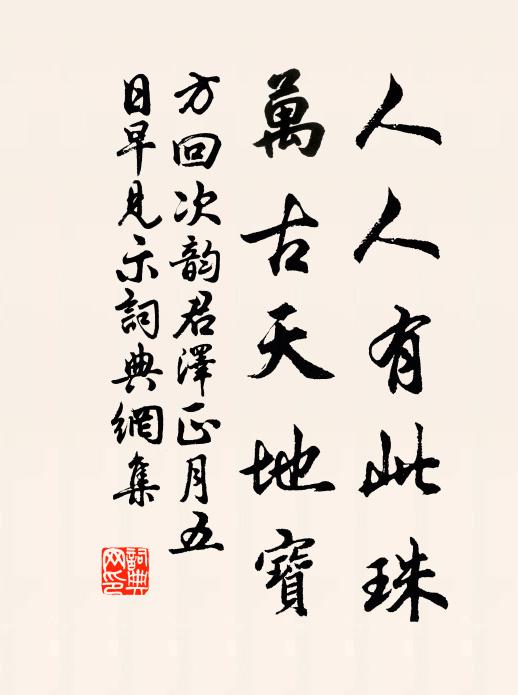 人人有此珠
萬古天地寶
方回次韵君澤正月五
日早見示詞典網集
詞典
网印